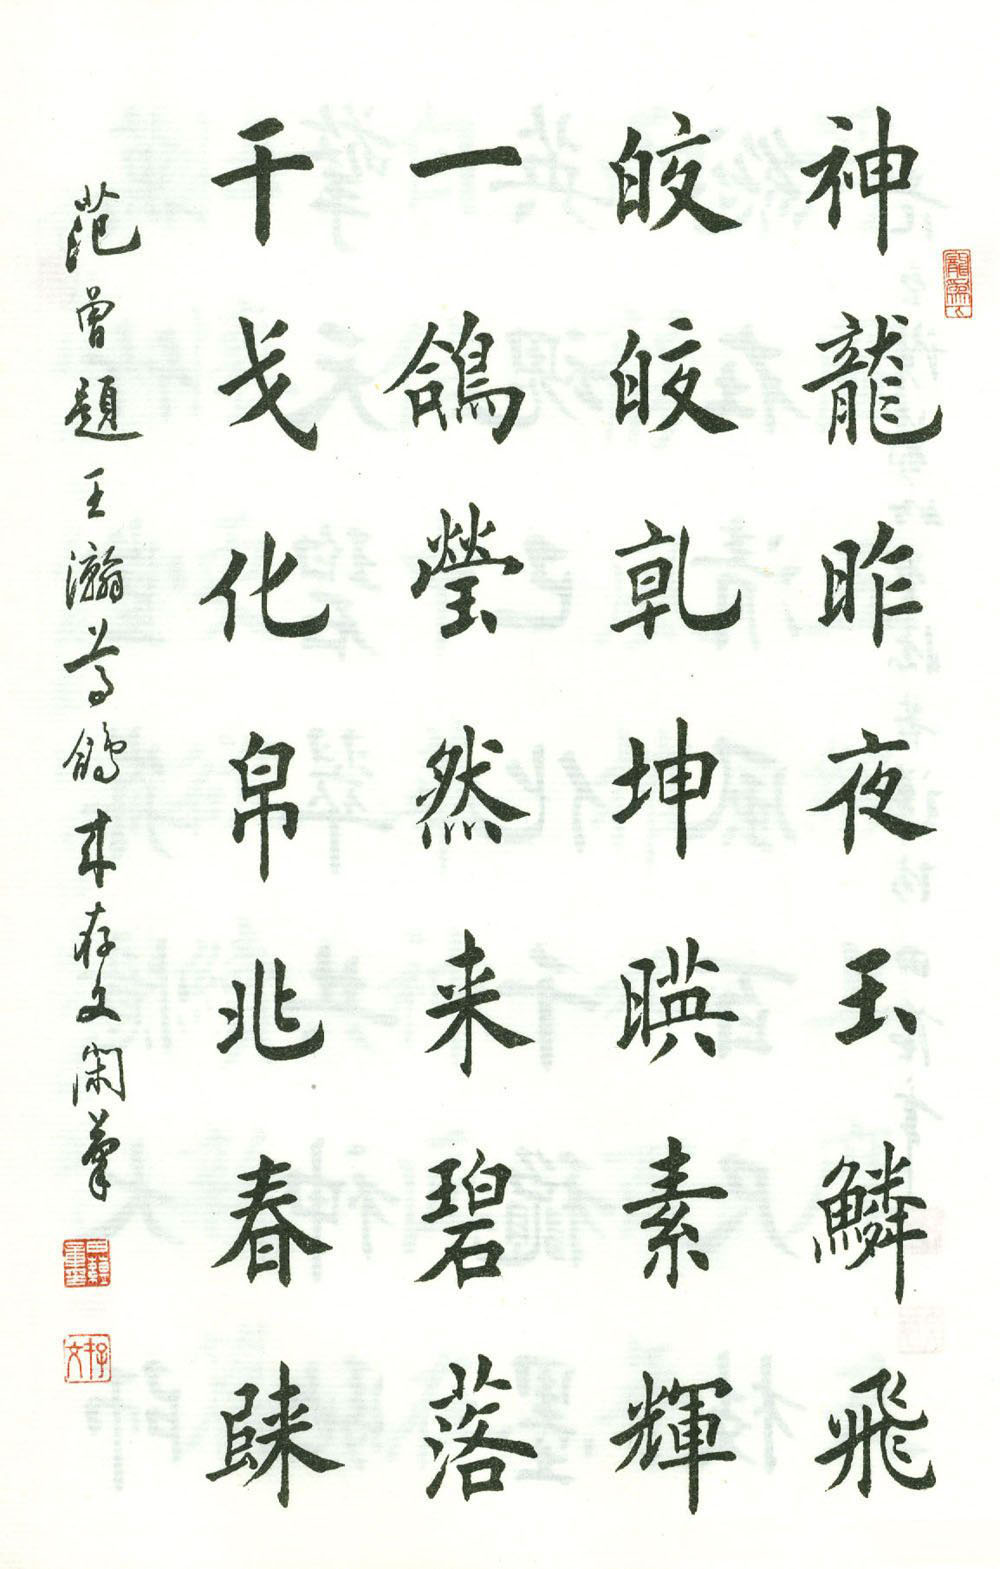 神龍昨夜玉鱗飛
皎皎乾坤暎素輝
一鴿瑩然来碧落
干戈化帛兆春歸
范曾題王瀚鴿存文閑筆
存文